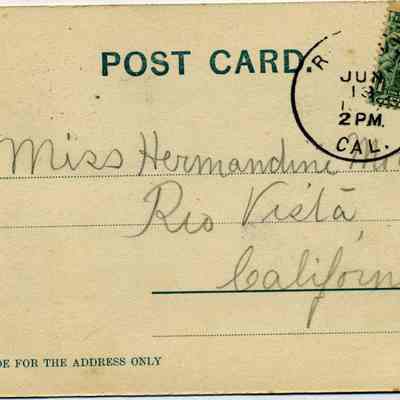 POST CARD.
R
JUN
13
2 PM.
CAL.
Miss Hermandine
Rio Vista
Californ
DE FOR THE ADDRESS ONLY